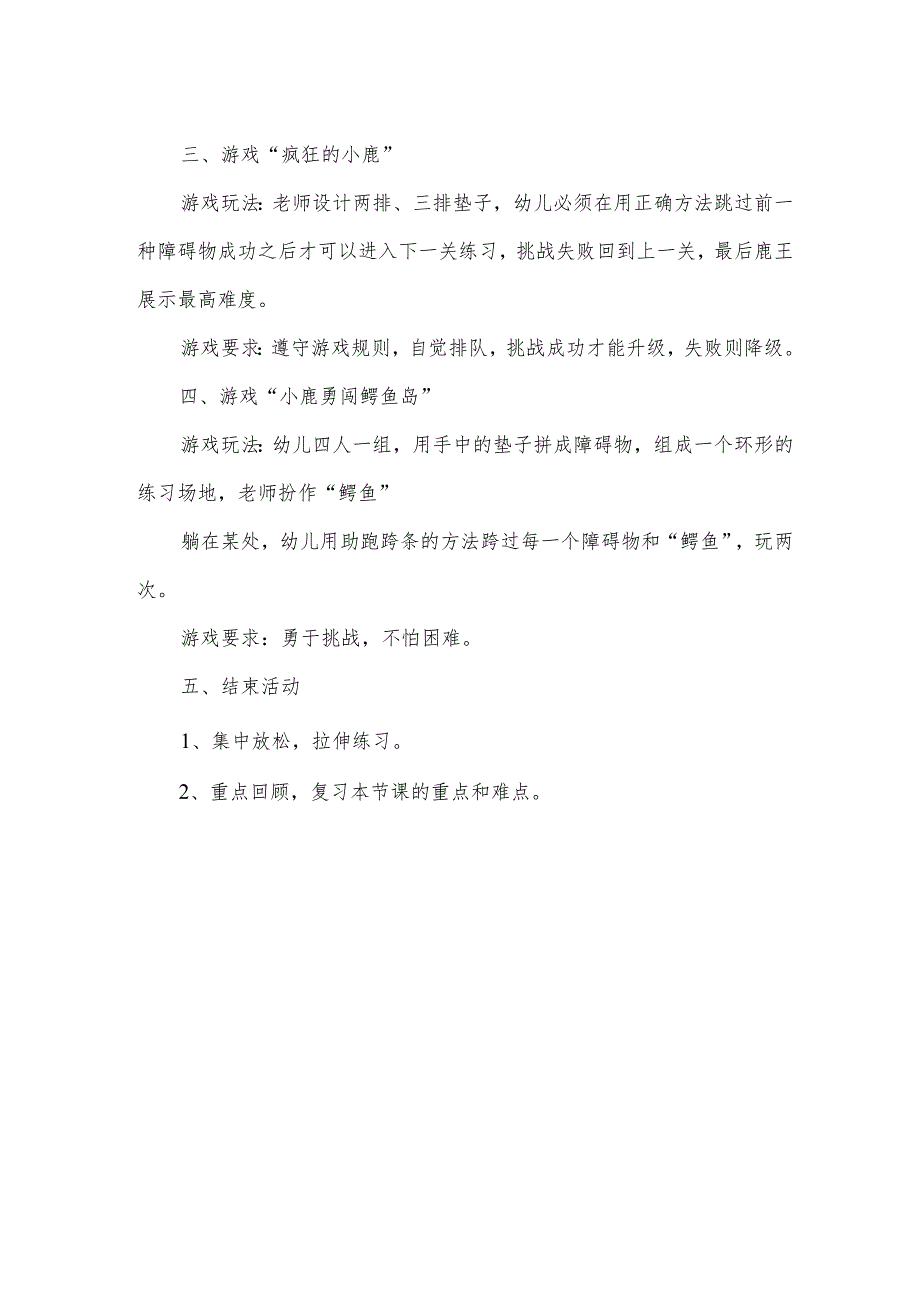 三、游戏“疯狂的小鹿”
游戏玩法：老师设计两排、三排垫子，幼儿必须在用正确方法跳过前一
种障碍物成功之后才可以进入下一关练习，挑战失败回到上一关，最后鹿王
展示最高难度。
游戏要求：遵守游戏规则，自觉排队，挑战成功才能升级，失败则降级。
四、游戏“小鹿勇闯鳄鱼岛”
游戏玩法：幼儿四人一组，用手中的垫子拼成障碍物，组成一个环形的
练习场地，老师扮作“鳄鱼”
躺在某处，幼儿用助跑跨条的方法跨过每一个障碍物和“鳄鱼”，玩两
次。
游戏要求：勇于挑战，不怕困难。
五、结束活动
1、集中放松，拉伸练习。
2、重点回顾，复习本节课的重点和难点。